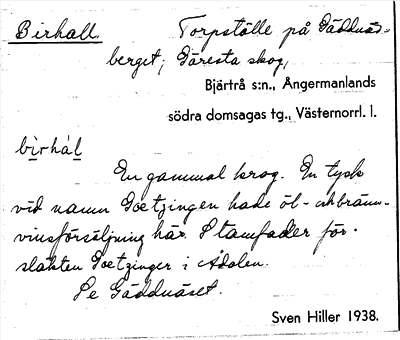 Birhall Torpställe på Gäddnäs-
berget, Järesta skog,
Bjärtrå s:n., Ångermanlands
södra domsagas tg., Västernorrl. l.
bìrhál
En gammal krog. En tysk
vid namn Goetzingen hade öl- och bränn-
vinsförsäljning här. Stamfader för
släkten Goetzinger i Ådalen.
Se Gäddnäset.
Sven Hiller 1938.